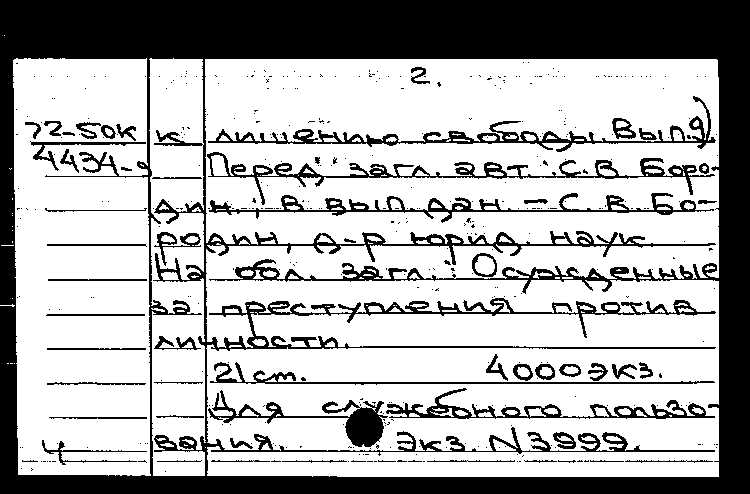 2.
72-50к к лишению свободы. Вып. 9)
4434-9 Перед загл. авт.: С.В. Боро-
дин.; в вып. дан. – С.В. Бо-
родин, д-р юрид. наук.
На обл. загл.: Осужденные
за преступления против
личности.
21 cm. 4000 экз.
Для служебного пользо-
вания. Экз. N 3999.
Ч